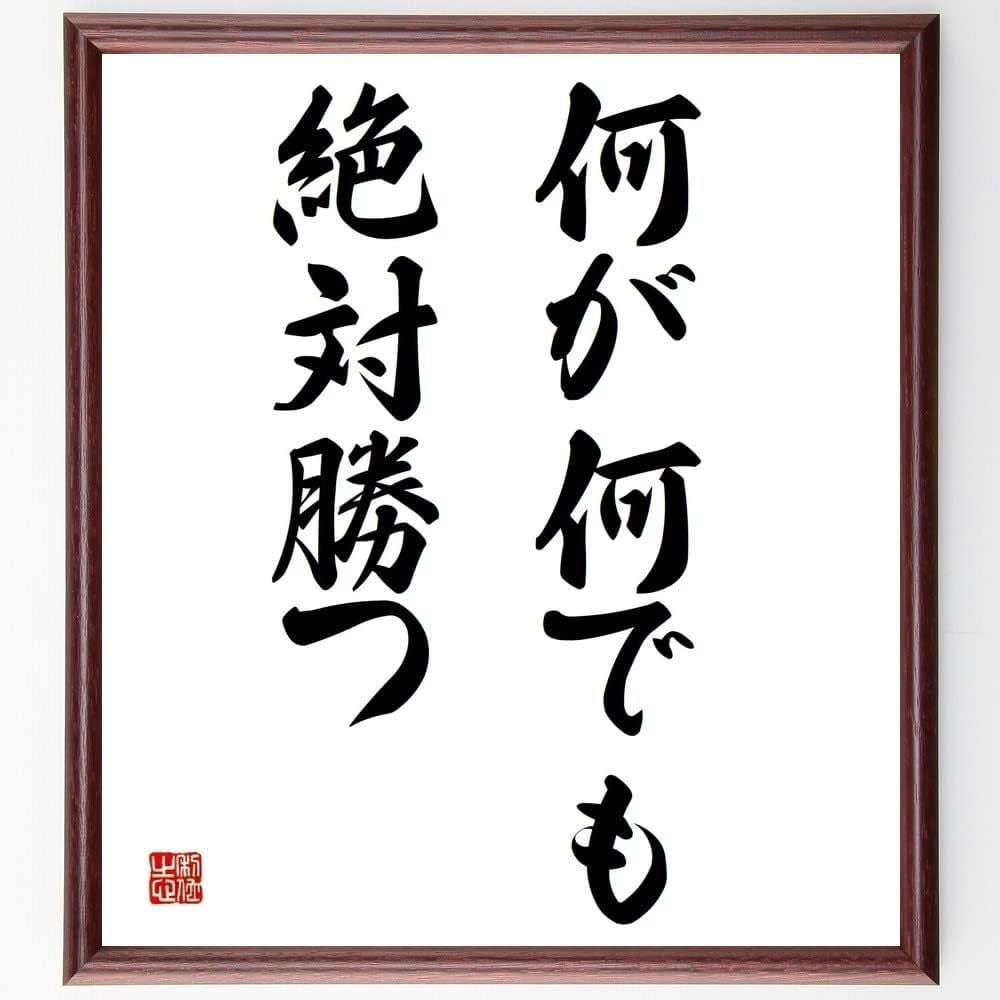 何が何でも
絶対勝つ